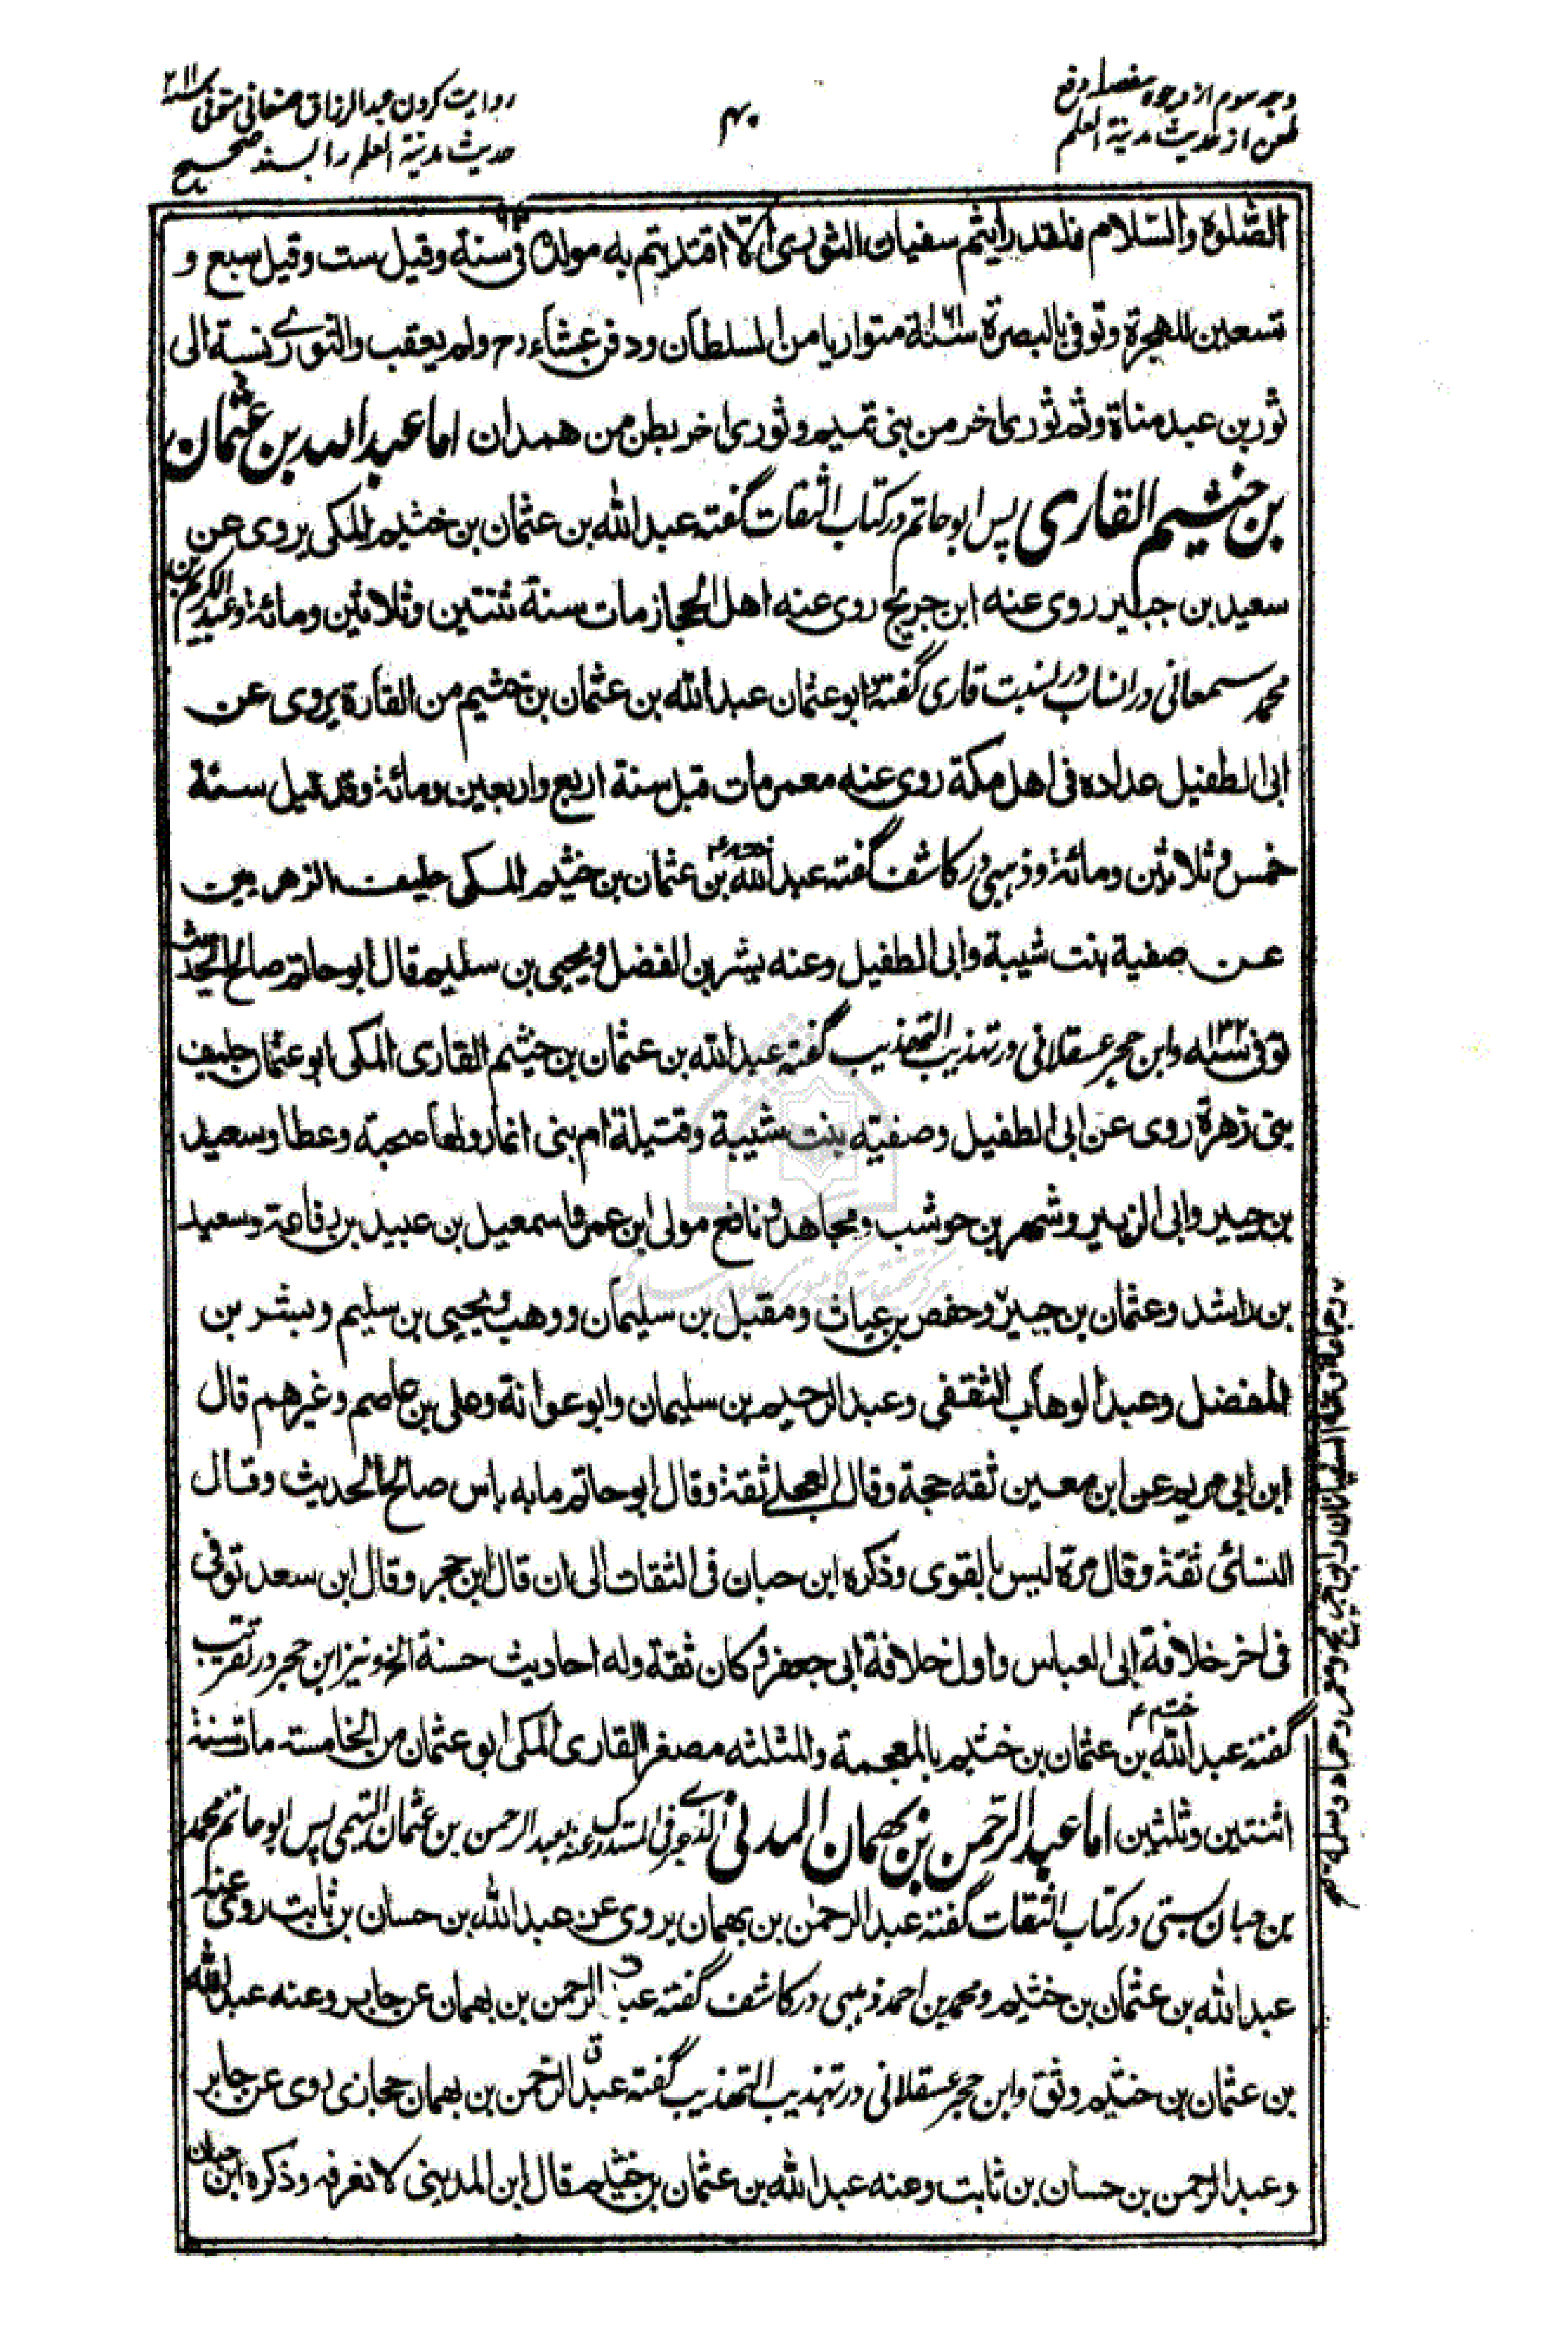 وجه سوم از وجوه مفصله رفع
طعن از حدیث مدینة العلم
۴۰
روایت کردن عبدالرزاق صنعانی متوفی سنه ۲۱۱
حدیث مدینة العلم را بسند صحیح
الصّلوة والسّلام فلقد رأیتم سفیان الثوری الّا اقتدیتم به مولده فی سنة ۹۳ وقیل ست وقیل سبع و
تسعین للهجرة وتوفی بالبصرة سنة ۱۶۱ متواریا من السلطان ودفن عشاء رح ولم یعقب والثوری نسبة الی
ثور بن عبد مناة وثم ثوری اخر من بنی تمیم وثوری اخر بطن من همدان اما عبد الله بن عثمان
بن خثیم القاری پس ابو حاتم در کتاب الثقات گفته عبد الله بن عثمان بن خثیم المکی یروی عن
سعید بن جبیر روی عنه ابن جریج روی عنه اهل الحجاز مات سنة ثنتین وثلاثین ومائة وعبد الکریم بن
محمد سمعانی در انساب در نسبت قاری گفته ابو عثمان عبد الله بن عثمان بن خثیم من القارة یروی عن
ابی الطفیل عداده فی اهل مکة روی عنه معمر مات قبل سنة اربع واربعین ومائة وقد قیل سنة
خمس وثلاثین ومائة وذهبی در کاشف گفته عبد الله بن عثمان بن خثیم المکی حلیف الزهریین
عن صفیة بنت شیبة وابی الطفیل وعنه بشر بن المفضل ویحیی بن سلیم قال ابو حاتم صالح الحدیث
توفی سنه ۱۳۲ وابن حجر عسقلانی در تهذیب التهذیب گفته عبد الله بن عثمان بن خثیم القاری المکی ابو عثمان حلیف
بنی زهرة روی عن ابی الطفیل وصفیه بنت شیبة وقتیلة ام بنی انمار ولها صحبة وعطا وسعید
بن جبیر وابی الزبیر وشهر بن حوشب ومجاهد ونافع مولی ابن عمر واسمعیل بن عبید بن رفاعة وسعید
بن راشد وعثمان بن جبیر وحفص بن غیاث ومقبل بن سلیمان ووهب ویحیی بن سلیم وبشر بن
المفضل وعبد الوهاب الثقفی وعبد الرحیم بن سلیمان وابو عوانة وعلی بن عاصم وغیرهم قال
ابن ابی مریم عن ابن معین ثقه حجة وقال العجلی ثقة وقال ابو حاتم ما به باس صالح الحدیث وقال
النسائی ثقة وقال مرة لیس بالقوی وذکره ابن حبان فی الثقات الی ان قال ابن حجر وقال ابن سعد توفی
فی اخر خلافة ابی العباس واول خلافة ابی جعفر وکان ثقة وله احادیث حسنة الخ ونیز ابن حجر در تقریب
گفته عبد الله بن عثمان بن خثیم بالمعجمة والمثلثه مصغر القاری المکی ابو عثمان من الخامسته مات سنة
اثنتین وثلثین اما عبد الرّحمن بن بهمان المدنی الذی عبد الرحمن بن عثمان التیمی پس ابو حاتم محمد
بن حبان بستی در کتاب الثقات گفته عبد الرحمن بن بهمان یروی عن عبد الله بن حسان بن ثابت روی عنه
عبد الله بن عثمان بن خثیم ومحمد بن احمد ذهبی در کاشف گفته عبد الرحمن بن بهمان عن جابر وعنه عبد الله
بن عثمان بن خثیم وثق وابن حجر عسقلانی در تهذیب التهذیب گفته عبد الرّحمن بن بهمان حجازی روی عن جابر
وعبد الرحمن بن حسان بن ثابت وعنه عبد الله بن عثمان بن خثیم قال ابن المدینی لا نعرفه وذکره ابن حبان